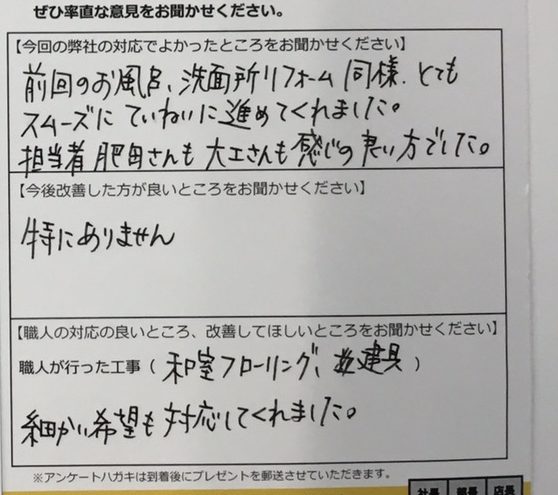 ぜひ率直な意見をお聞かせください。
【今回の弊社の対応でよかったところをお聞かせください】
前回のお風呂、洗面所リフォーム同様、とても
スムーズにていねいに進めてくれました。
担当者 肥田さんも大工さんも感じの良い方でした。
【今後改善した方が良いところをお聞かせください】
特にありません
【職人の対応の良いところ、改善してほしいところをお聞かせください】
職人が行った工事（ 和室フローリング、建具 ）
細かい希望も対応してくれました。
※アンケートハガキは到着後にプレゼントを郵送させていただきます。
社長 部長 店長